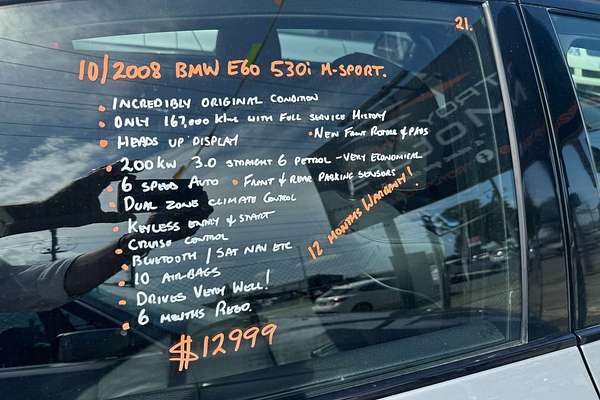 21.
10/2008 BMW E60 530i M-SPORT.
• INCREDIBLY ORIGINAL CONDITION
• ONLY 167,000 KMS WITH FULL SERVICE HISTORY
• HEADS UP DISPLAY • NEW FRONT ROTORS & PADS
• 200KW 3.0 STRAIGHT 6 PETROL - VERY ECONOMICAL
• 6 SPEED AUTO • FRONT & REAR PARKING SENSORS
• DUAL ZONE CLIMATE CONTROL
• KEYLESS ENTRY & START
• CRUISE CONTROL
• BLUTOOTH / SAT NAV ETC
12 MONTHS WARRANTY!
• 10 AIR-BAGS
• DRIVES VERY WELL!
• 6 MONTHS REGO.
$12999